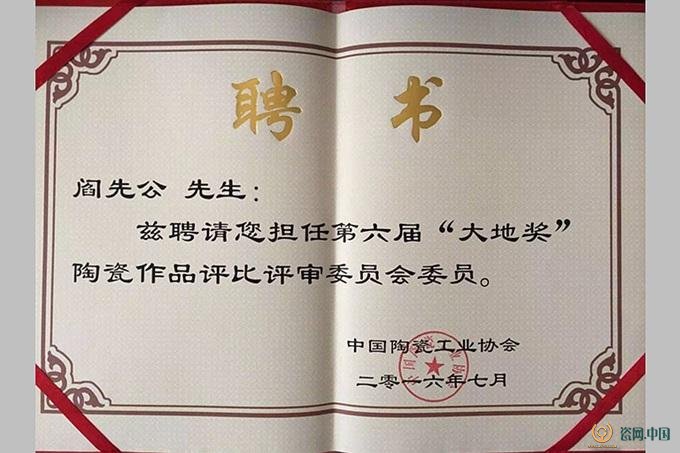 聘书
阎先公 先生：
兹聘请您担任第六届“大地奖”
陶瓷作品评比评审委员会委员。
中国陶瓷工业协会
二零一六年七月
瓷网.中国